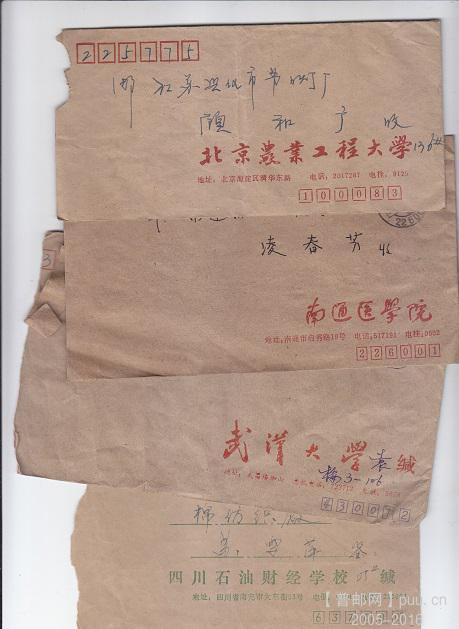 225775
江苏兴化市节
顾 和 广 收
北京農業工程大学 136#
地址:北京海淀区清华东路 电话:2017267 电挂:8125
100083
凌春芳 收
22.6
南通医學院
地址:南通市启秀路19号 电话:517191 电挂:0602
226001
3
武漢大學 袁 缄
梅3-106
430072
棉纺织厂
四川石油财经学校 缄
地址:四川省南充市大东街53号
637
【普邮网】puu.cn
2005-2016